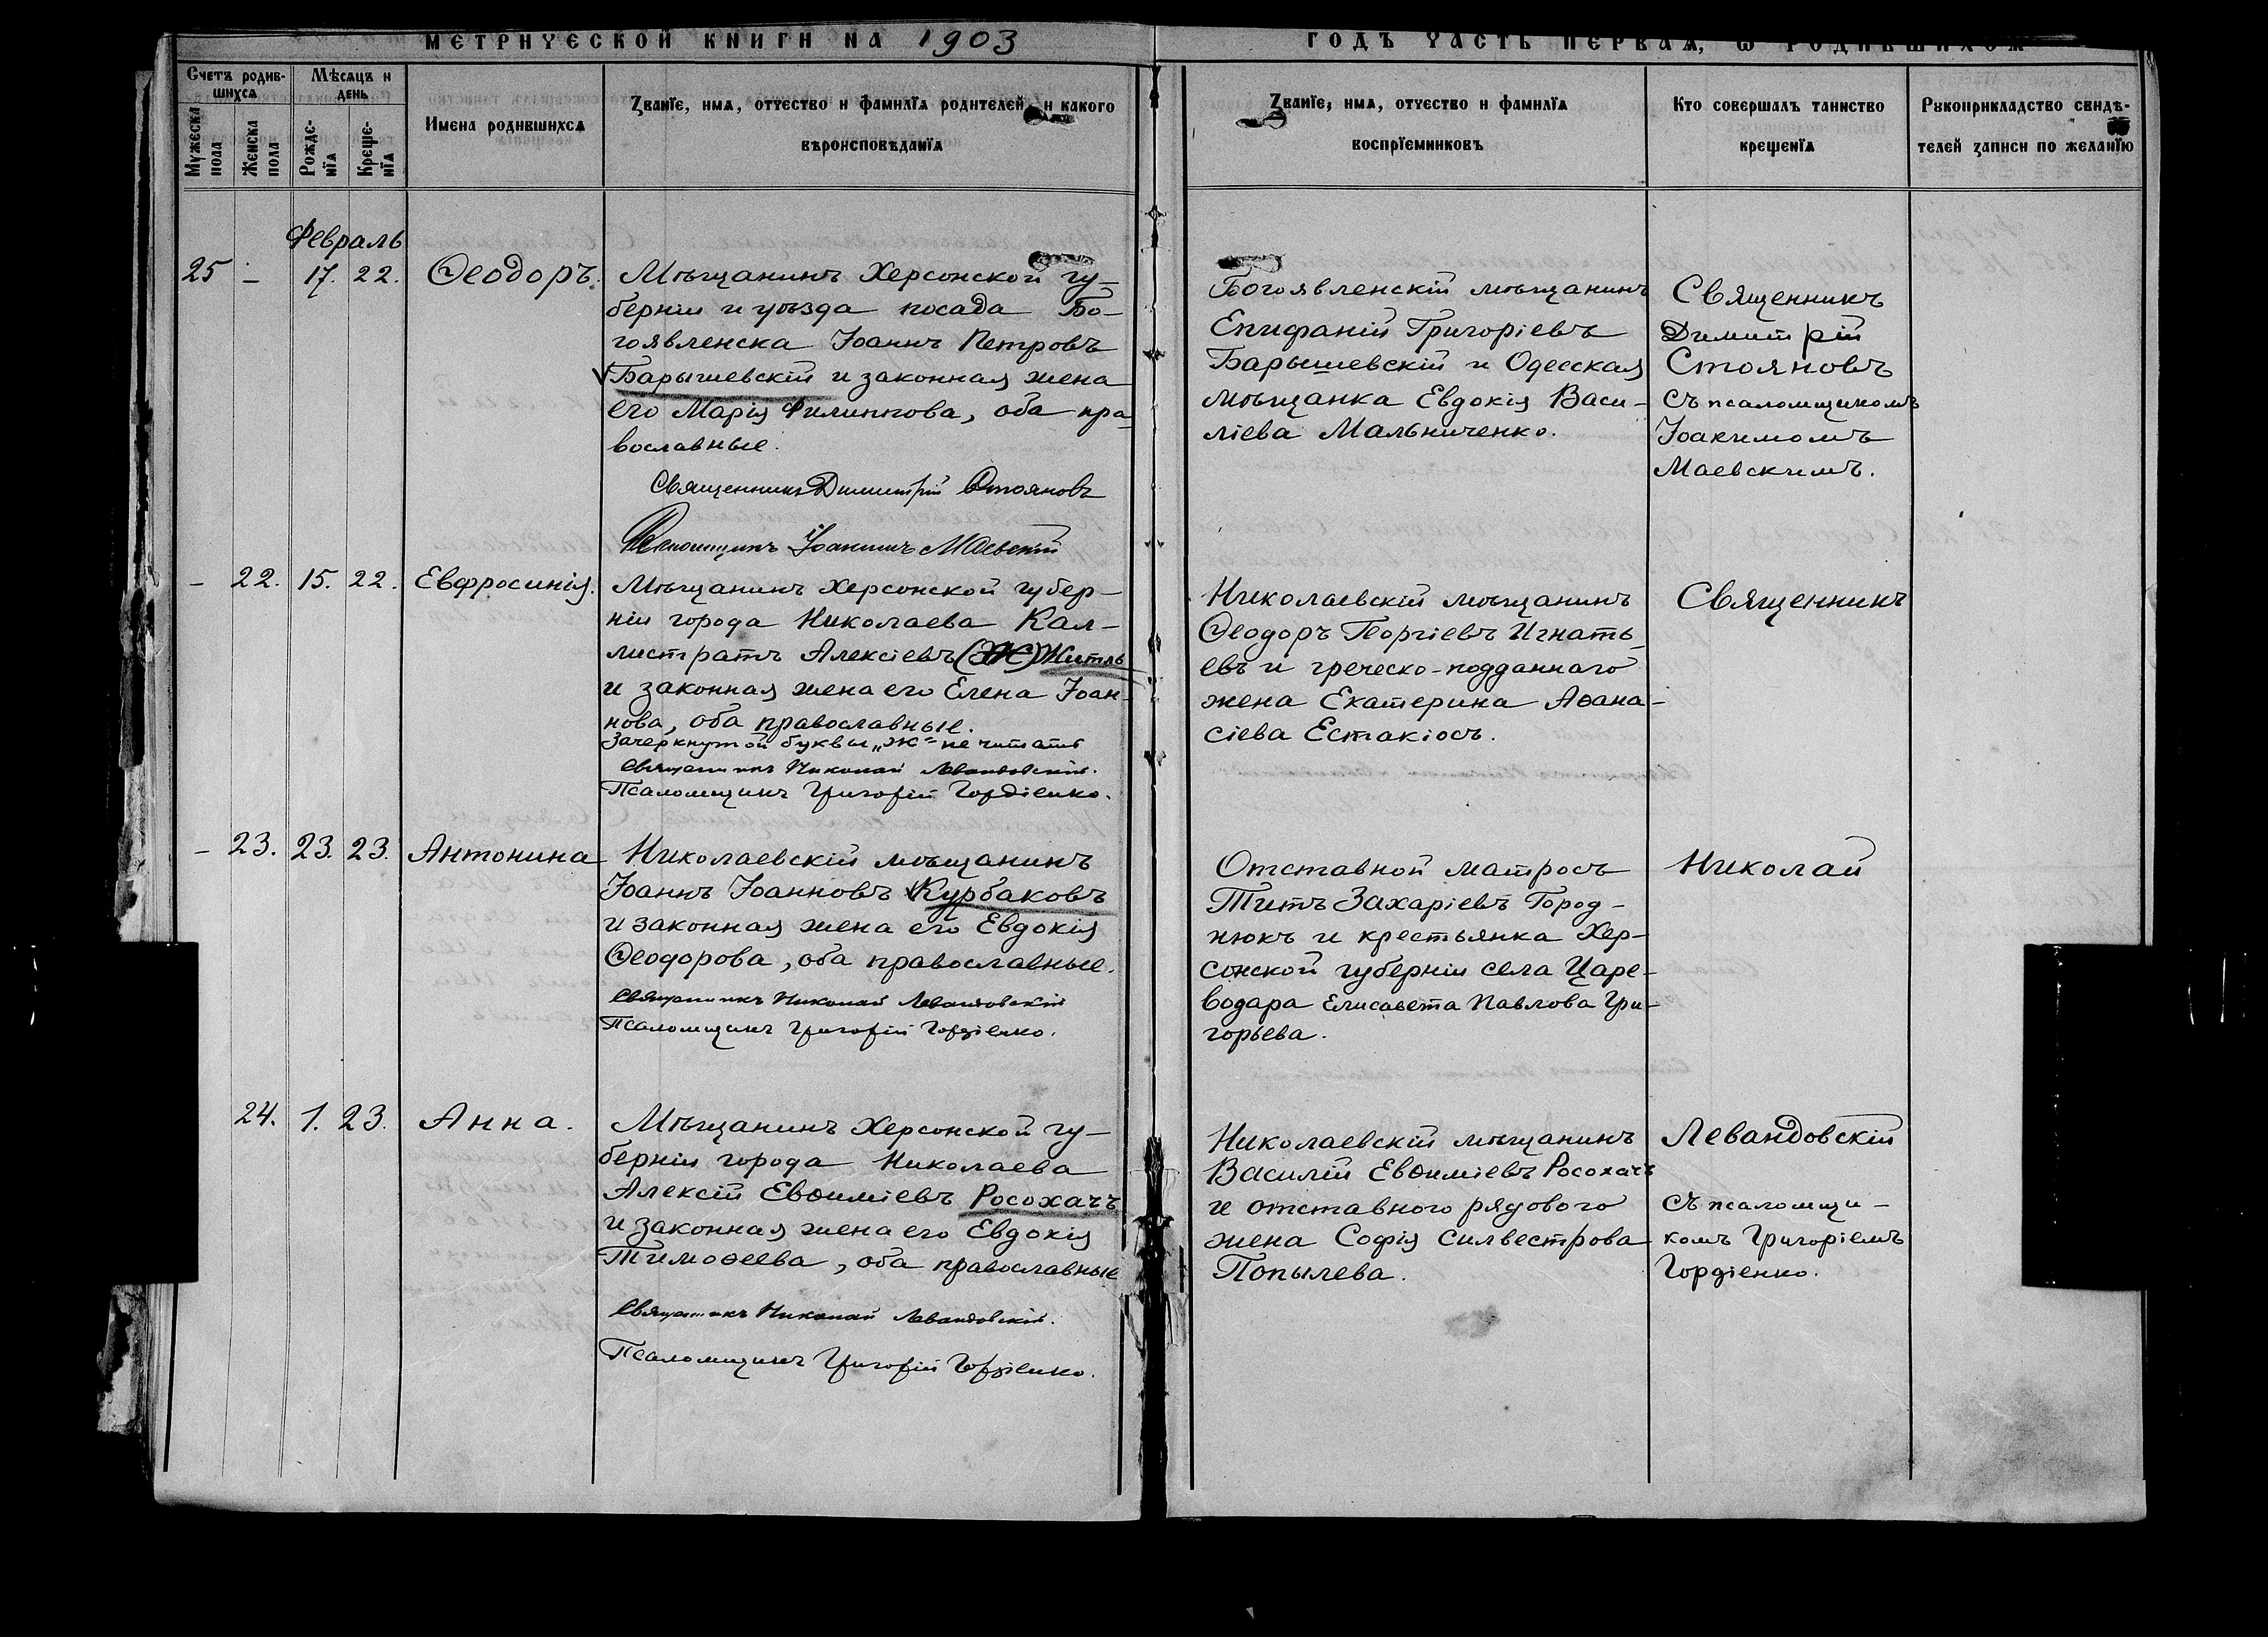 МЕТРИЧЕСКОЙ КНИГИ НА 1903
ГОДЪ ЧАСТЬ ПЕРВАЯ, Ѡ РОДИВШИХСЯ
Счетъ родив-
шихся
Мѣсяцъ и
день
Мужеска
пола
Женска
пола
Рожде-
нїя
Креще-
нїя
Имена родившихся
Званїе, имя, отчество и фамилїя родителей, и какого
вѣроисповѣданїя
Званїе, имя, отчество и фамилїя
воспрїемниковъ
Кто совершалъ таинство
крещенїя
Рукоприкладство свидѣ-
телей записи по желанїю
Февраль
25 – 17. 22. Ѳеодоръ.
Мѣщанинъ Херсонской гу-
берніи и уѣзда посада Бо-
гоявленска Іоаннъ Петровъ
Барышевскій и законная жена
его Марія Филиппова, оба пра-
вославные.
Священникъ Димитрій Стояновъ
Псаломщикъ Іоакимъ Маевскій
Богоявленскій мѣщанинъ
Епифаній Григоріевъ
Барышевскій и Одесская
мѣщанка Евдокія Васи-
ліева Мальниченко.
Священникъ
Димитрій
Стояновъ
съ псаломщикомъ
Іоакимомъ
Маевскимъ.
– 22. 15. 22. Евфросинія.
Мѣщанинъ Херсонской губер-
ніи города Николаева Кал-
листратъ Алексіевъ (Ж) Житль
и законная жена его Елена Іоан-
нова, оба православные.
Зачеркнутой буквы „Ж" не читать
Священникъ Николай Левандовскій.
Псаломщикъ Григорій Гордіенко.
Николаевскій мѣщанинъ
Ѳеодоръ Георгіевъ Игнать-
евъ и греческо-подданнаго
жена Екатерина Аѳана-
сіева Естакіосъ.
Священникъ
– 23. 23. 23. Антонина
Николаевскій мѣщанинъ
Іоаннъ Іоанновъ Курбаковъ
и законная жена его Евдокія
Ѳеодорова, оба православные.
Священникъ Николай Левандовскій
Псаломщикъ Григорій Гордіенко.
Отставной матросъ
Титъ Захаріевъ Город-
нюкъ и крестьянка Хер-
сонской губерніи села Царе-
водара Елисавета Павлова Гри-
горьева.
Николай
24. 1. 23. Анна.
Мѣщанинъ Херсонской гу-
берніи города Николаева
Алексій Евѳиміевъ Росохачъ
и законная жена его Евдокія
Тимоѳеева, оба православные
Священникъ Николай Левандовскій.
Псаломщикъ Григорій Гордіенко.
Николаевскій мѣщанинъ
Василій Евѳиміевъ Росохачъ
и отставного рядового
жена Софія Силвестрова
Попылева.
Левандовскій
съ псаломщи-
комъ Григоріемъ
Гордіенко.